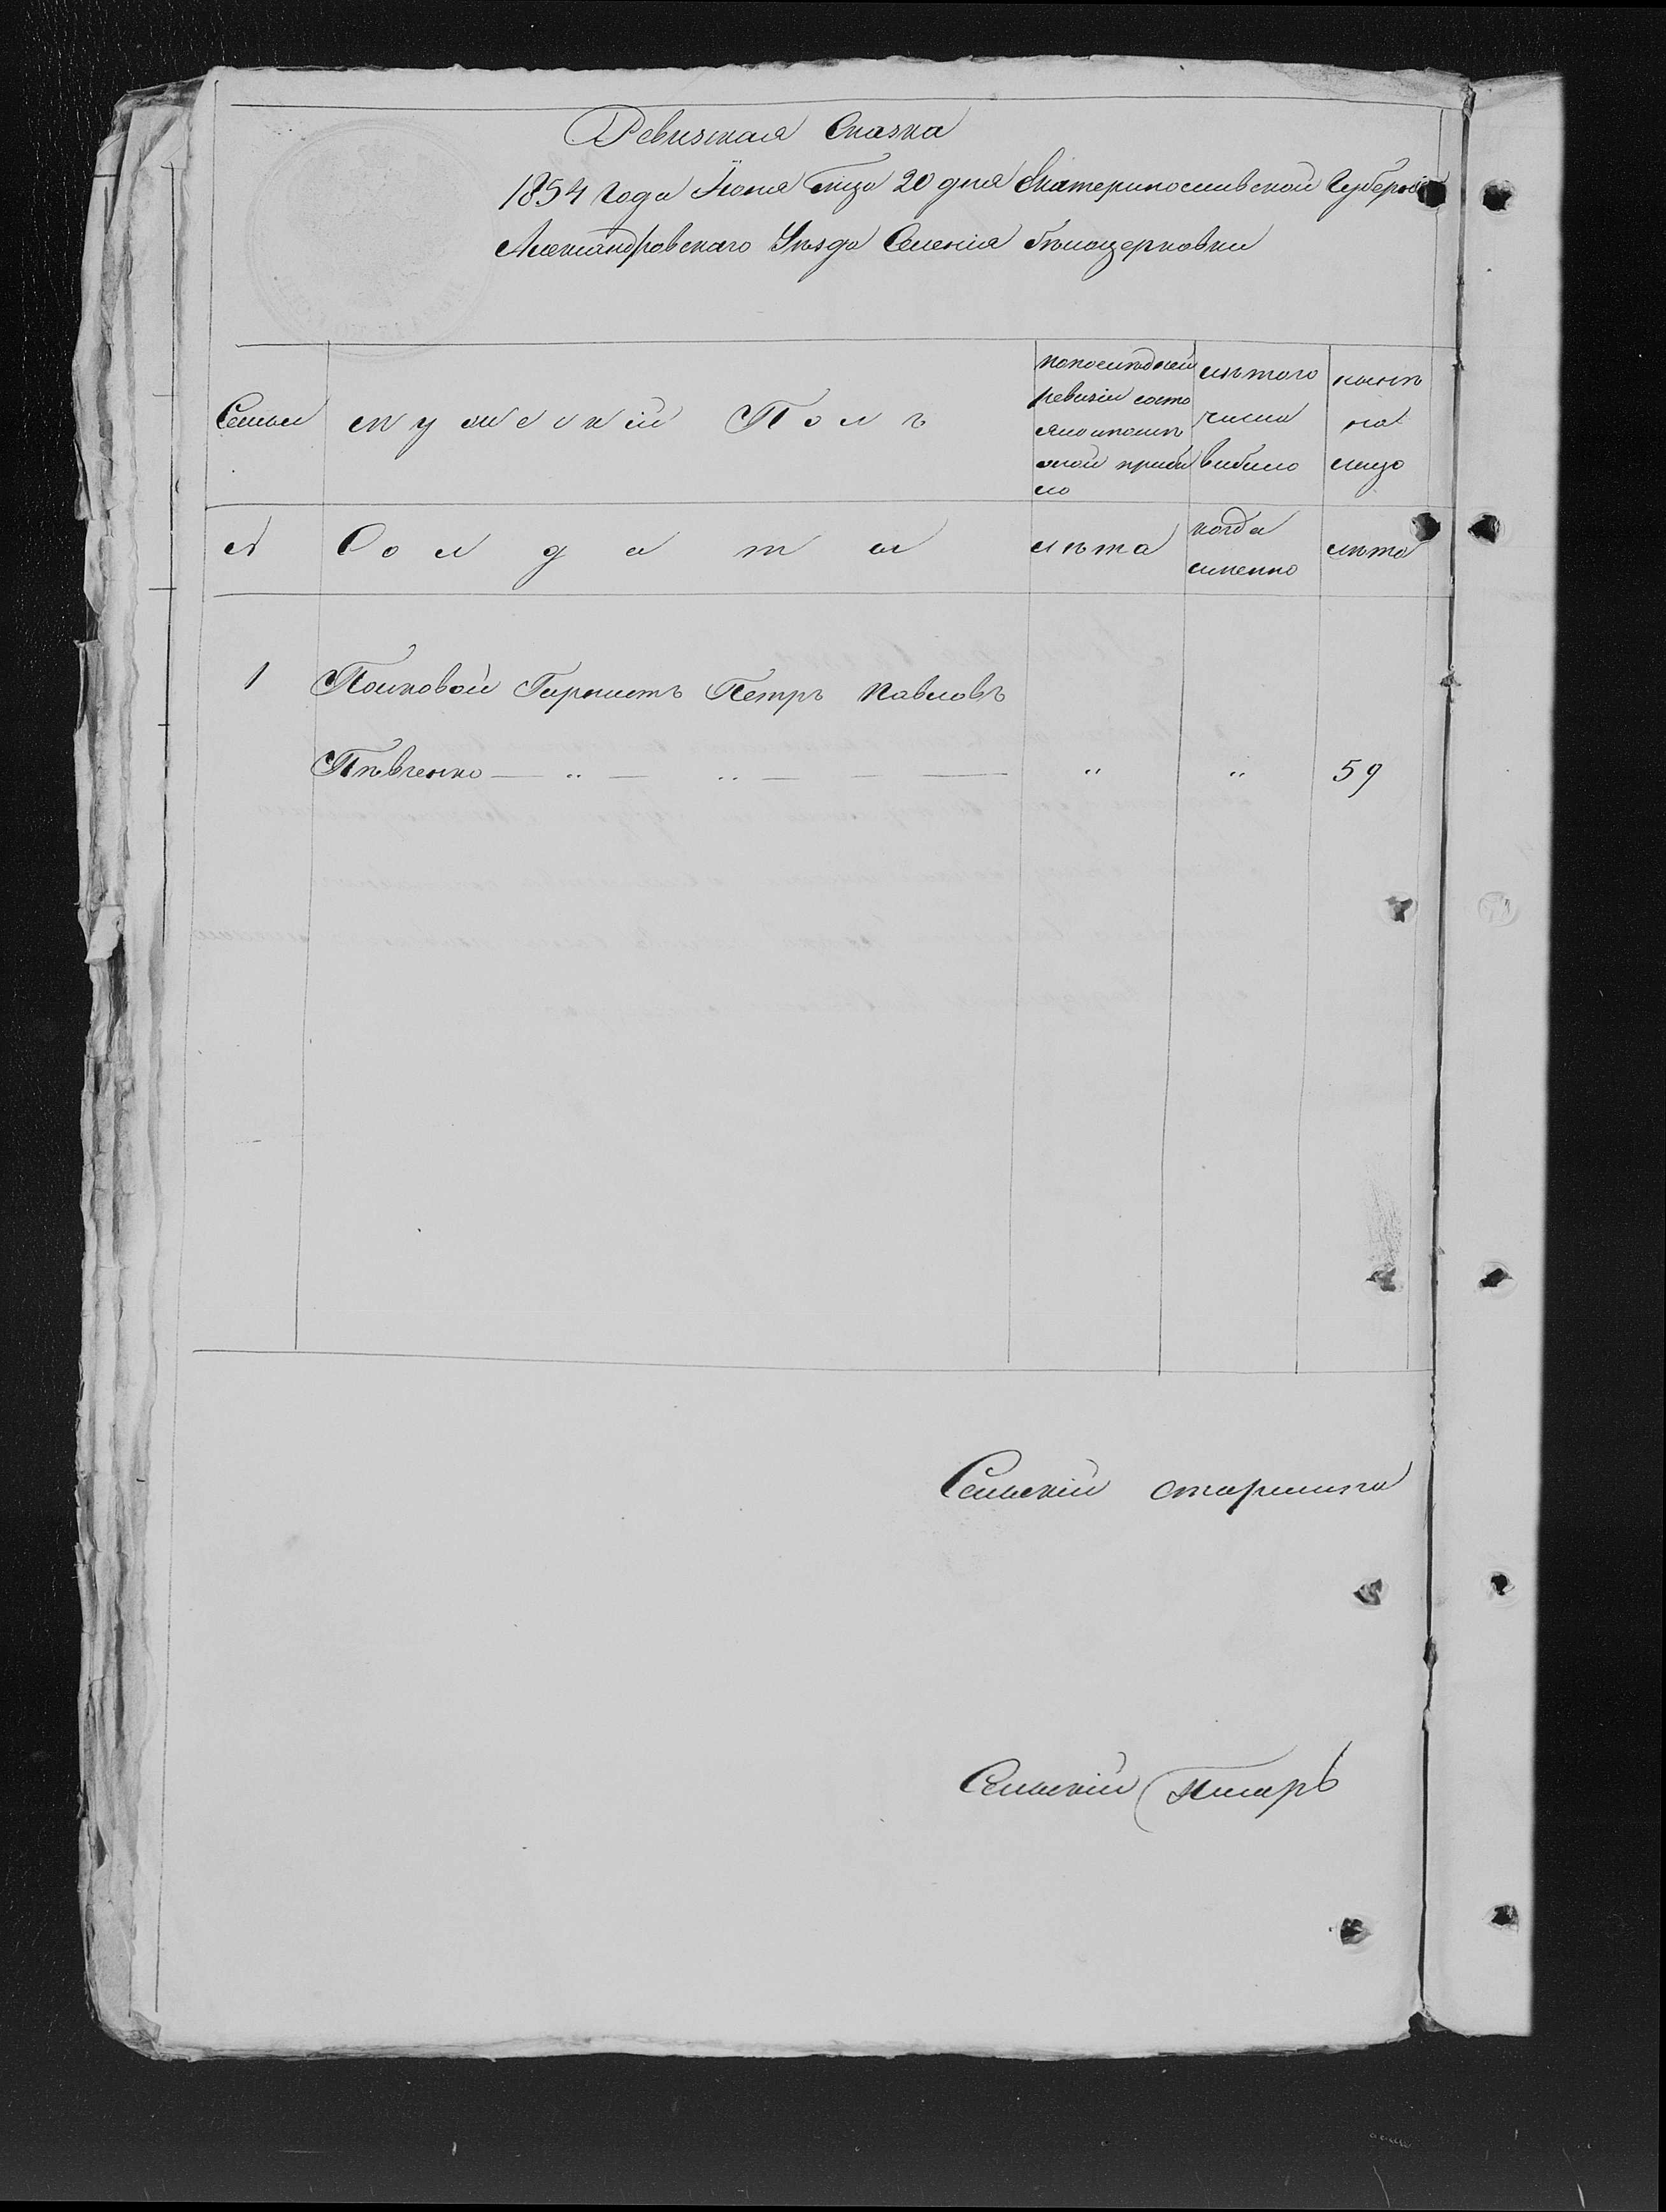 Ревизская Сказка
1854 года Июня мца 20 дня Екатеринославской Губерніи
Александровскаго Уезда Селенія Бѣлоцерковки
Семьи
мужескій Полъ
попоследней ревизіи состо
яло ипослѣ
оной прибы
ло
изътого числа выбыло
нынѣ на лицо
№
Солдаты
лѣта
когда именно
лѣта
1 Полковой Горнистъ Петръ Павловъ
Пѣвченко — „ — „ — — — „ „ 59
Сельскій старшина
Сельскій Писарь